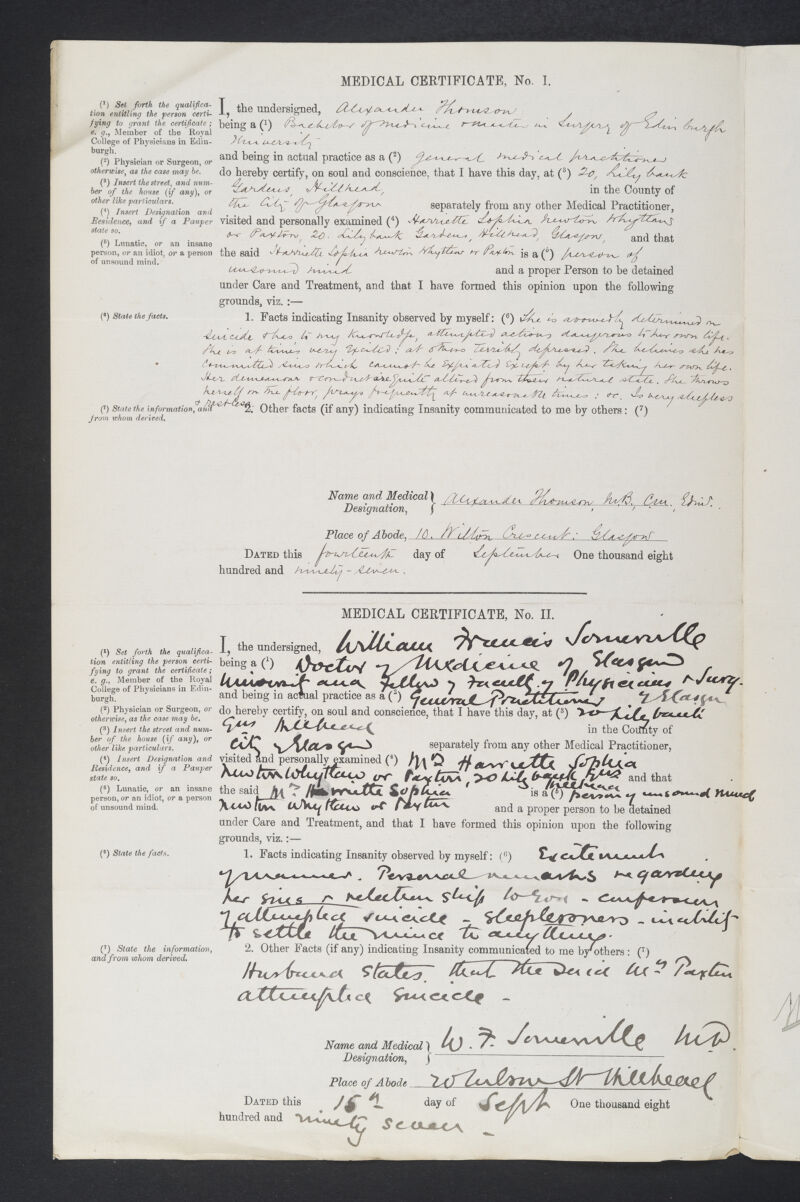 MEDICAL CERTIFICATE, No. I.
(¹) Set forth the qualifica-
tion entitling the person certi-
fying to grant the certificate;
e. g., Member of the Royal
College of Physicians in Edin-
burgh.
(²) Physician or Surgeon, or
otherwise, as the case may be.
(³) Insert the street, and num-
ber of the house (if any), or
other like particulars.
(⁴) Insert Designation and
Residence, and if a Pauper
state so.
(⁵) Lunatic, or an insane
person, or an idiot, or a person
of unsound mind.
I, the undersigned, Alexander Thomson
being a (¹) Bachelor of Medicine & Master in Surgery of Edinburgh
University
and being in actual practice as a (²) general medical practitioner
do hereby certify, on soul and conscience, that I have this day, at (³) 20, Lilybank
Gardens, Hillhead, in the County of
the City of Glasgow separately from any other Medical Practitioner,
visited and personally examined (⁴) Harriette Sophia Newton Whyttaw
or Paxton, 20. Lilybank Gardens, Hillhead, Glasgow, and that
the said Harriette Sophia Newton Whyttaw or Paxton is a (⁵) person of
unsound mind and a proper Person to be detained
under Care and Treatment, and that I have formed this opinion upon the following
grounds, viz. :—
(⁶) State the facts.
1. Facts indicating Insanity observed by myself: (⁶) She is avowedly determined on
suicide & has to my knowledge, attempted actions dangerous to her own life.
She is at times very excited: at others terribly depressed. She believes she has
committed sins which cannot be expiated except by her taking her own life.
Her demeanour & conduct are quite altered from their natural state. She throws
herself on the floor, prays frequently at unreasonable times: &c. Is very sleepless
& restless.
(⁷) State the information, and
from whom derived.
2. Other facts (if any) indicating Insanity communicated to me by others: (⁷)
Name and Medical
Designation, Alexander Thomson, M.B., C.M., Edin.
Place of Abode, 10. Wilton Crescent: Glasgow
DATED this fourteenth day of September One thousand eight
hundred and ninety-seven.
MEDICAL CERTIFICATE, No. II.
(¹) Set forth the qualifica-
tion entitling the person certi-
fying to grant the certificate;
e. g., Member of the Royal
College of Physicians in Edin-
burgh.
(²) Physician or Surgeon, or
otherwise, as the case may be.
(³) Insert the street and num-
ber of the house (if any), or
other like particulars.
(⁴) Insert Designation and
Residence, and if a Pauper
state so.
(⁵) Lunatic, or an insane
person, or an idiot, or a person
of unsound mind.
I, the undersigned, William Francis Somerville
being a (¹) Doctor of Medicine of Glasgow
University and Fellow of Faculty of Physicians & Surg.
and being in actual practice as a (²) General Practitioner of Glasgow
do hereby certify, on soul and conscience, that I have this day, at (³) 20 Lilybank
Gns Hillhead in the County of
City of Glasgow separately from any other Medical Practitioner,
visited and personally examined (⁴) Mrs Harriette Sophia
Newton Whyttaw or Paxton, 20 Lilybank Gns Hillhead and that
the said Mrs Harriette Sophia is a (⁵) person of unsound mind
Newton Whyttaw or Paxton and a proper person to be detained
under Care and Treatment, and that I have formed this opinion upon the following
grounds, viz. :—
(⁶) State the facts.
1. Facts indicating Insanity observed by myself: (⁶) Excitement
of manner. Personal remarks regarding
her sins & relationship to God - confession
of attempted suicide - sleeplessness - inability
to settle the mind to anything.
(⁷) State the information,
and from whom derived.
2. Other Facts (if any) indicating Insanity communicated to me by others: (⁷)
Husband states that the said Mrs Paxton
attempted suicide -
Name and Medical
Designation, W. F. Somerville M.D.
Place of Abode St Hillhead
DATED this 15th day of Sept One thousand eight
hundred and ninety seven -